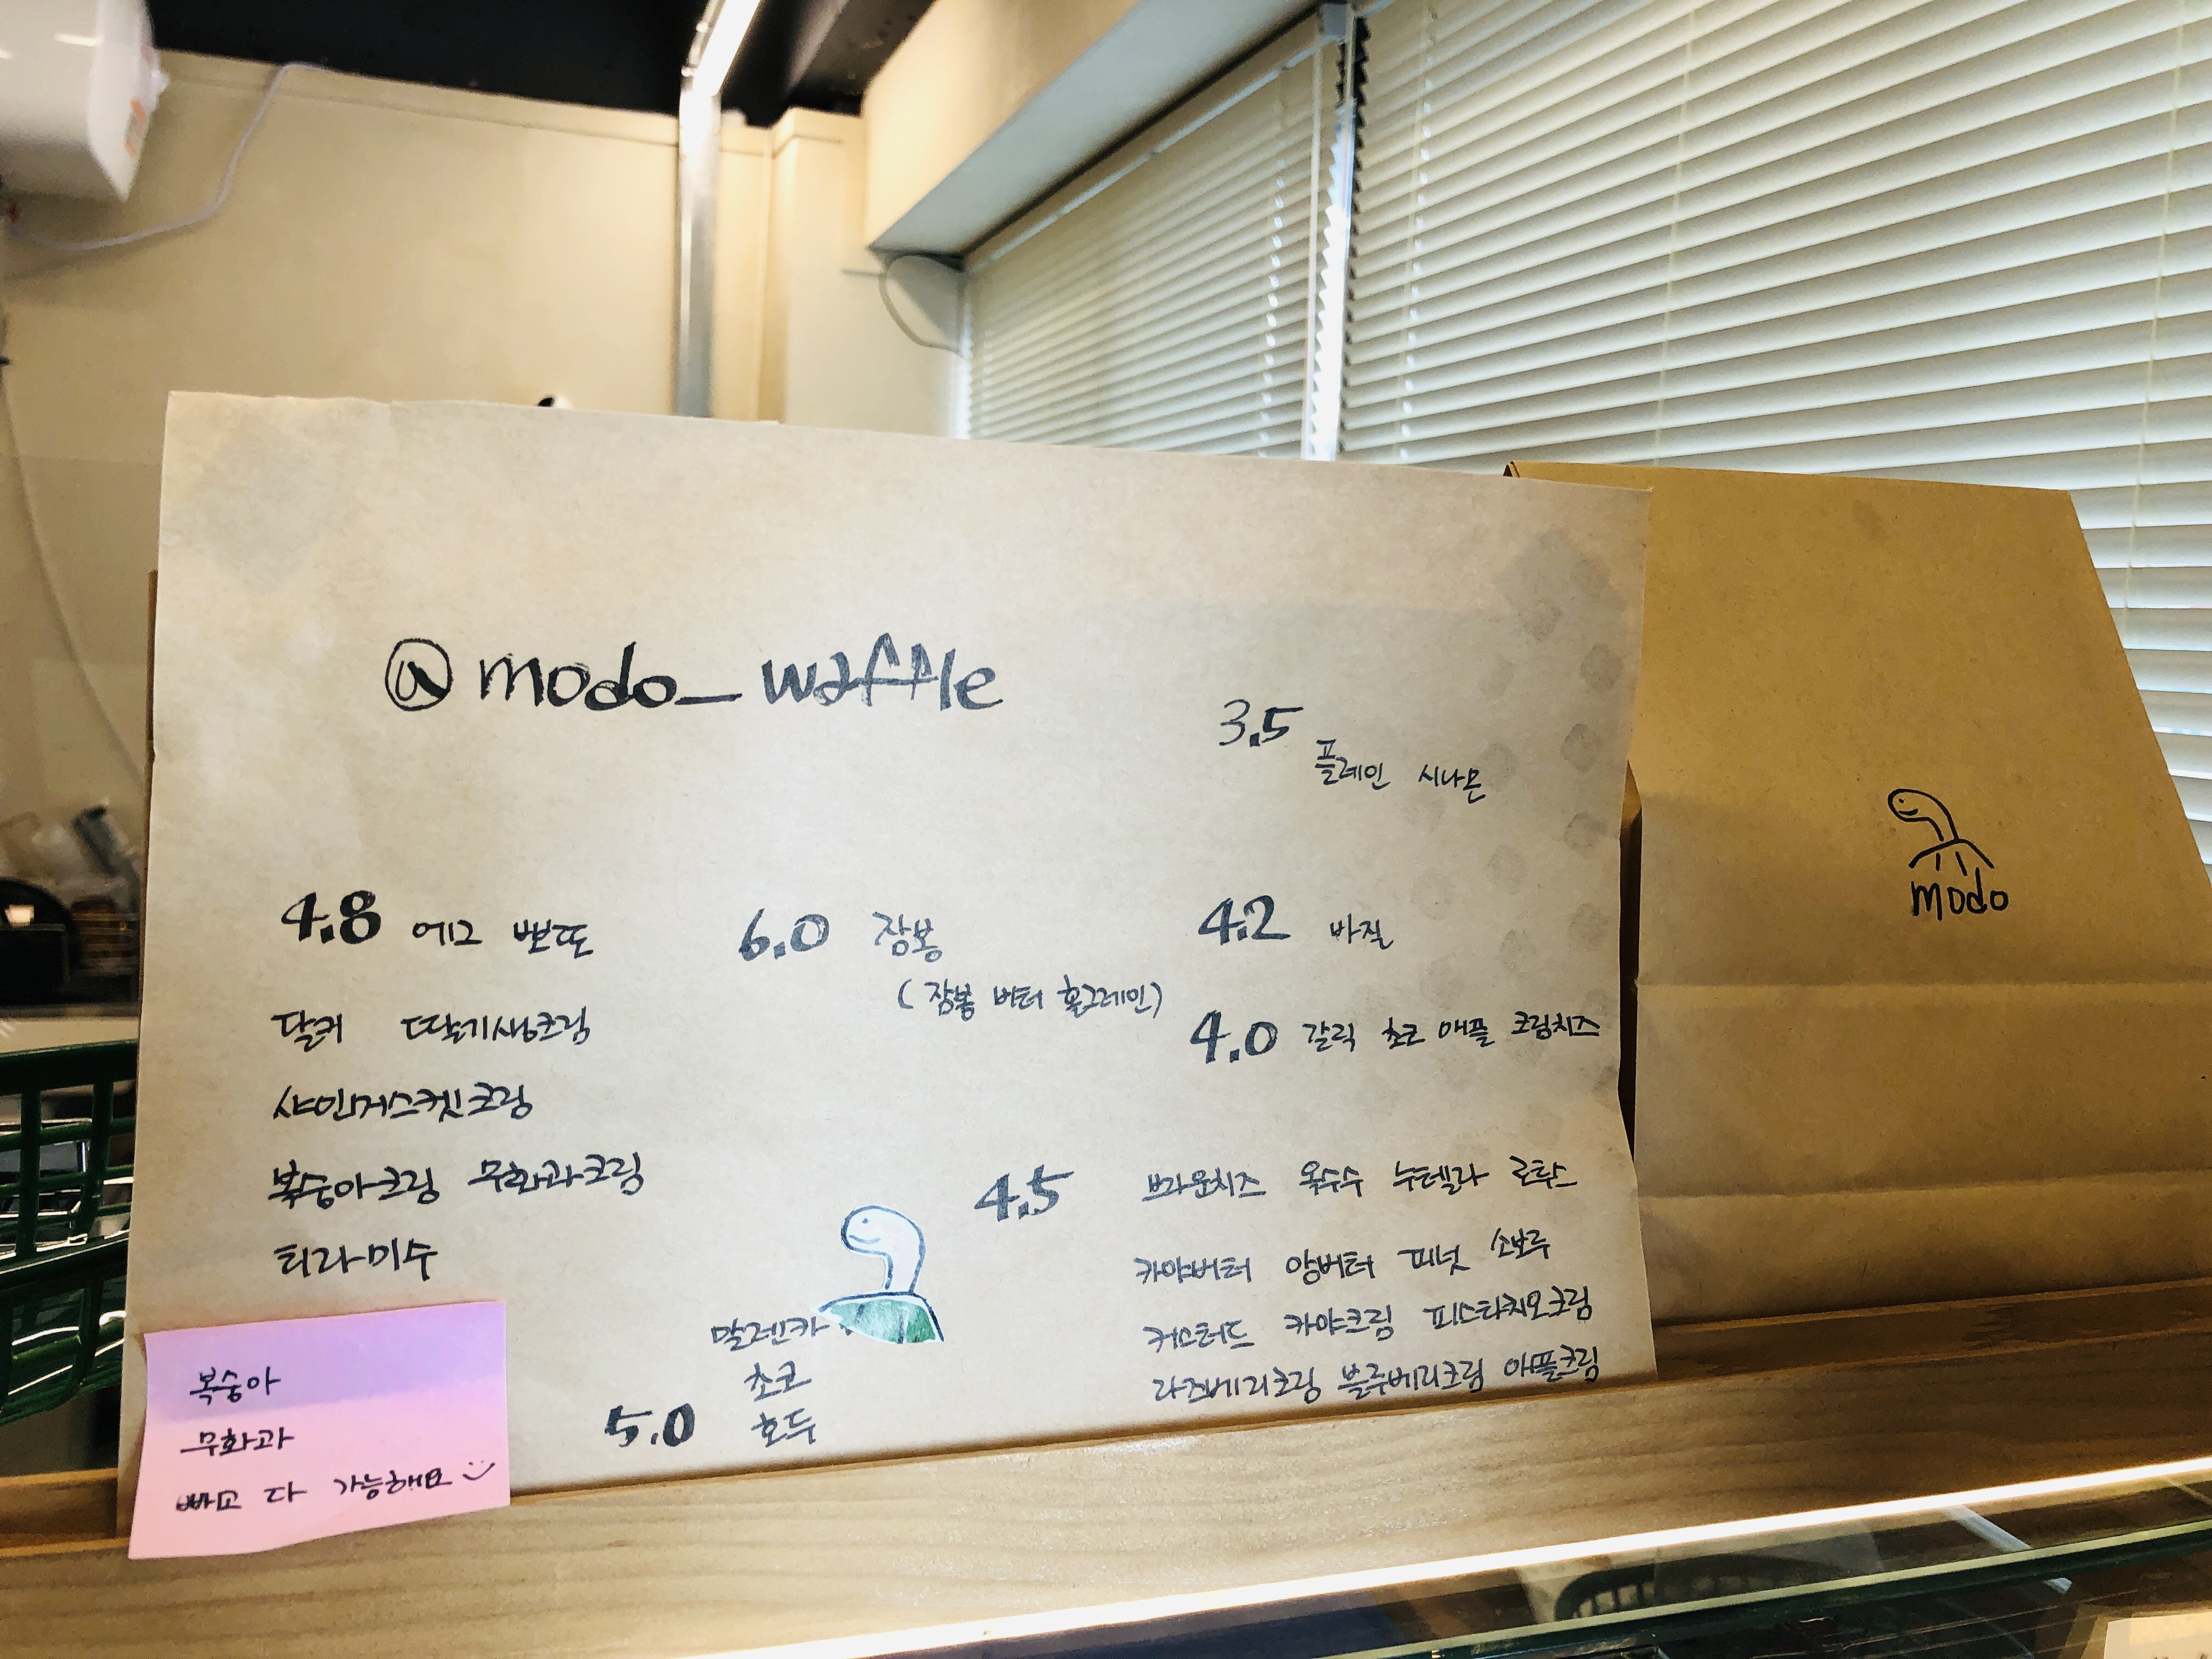 @modo_waffle
3.5 플레인 시나몬
4.8 에그 뽀또
달커 딸기생크림
샤인머스켓크림
복숭아크림 무화과크림
티라미수
6.0 잠봉
(잠봉 버터 홀그레인)
4.2 바질
4.0 갈릭 초코 애플 크림치즈
4.5 브라운치즈 옥수수 누텔라 로투스
카야버터 앙버터 피넛 소보루
커스터드 카야크림 피스타치오크림
라즈베리크림 블루베리크림 애플크림
말렌카
초코
5.0 호두
복숭아
무화과
빼고 다 가능해요
modo